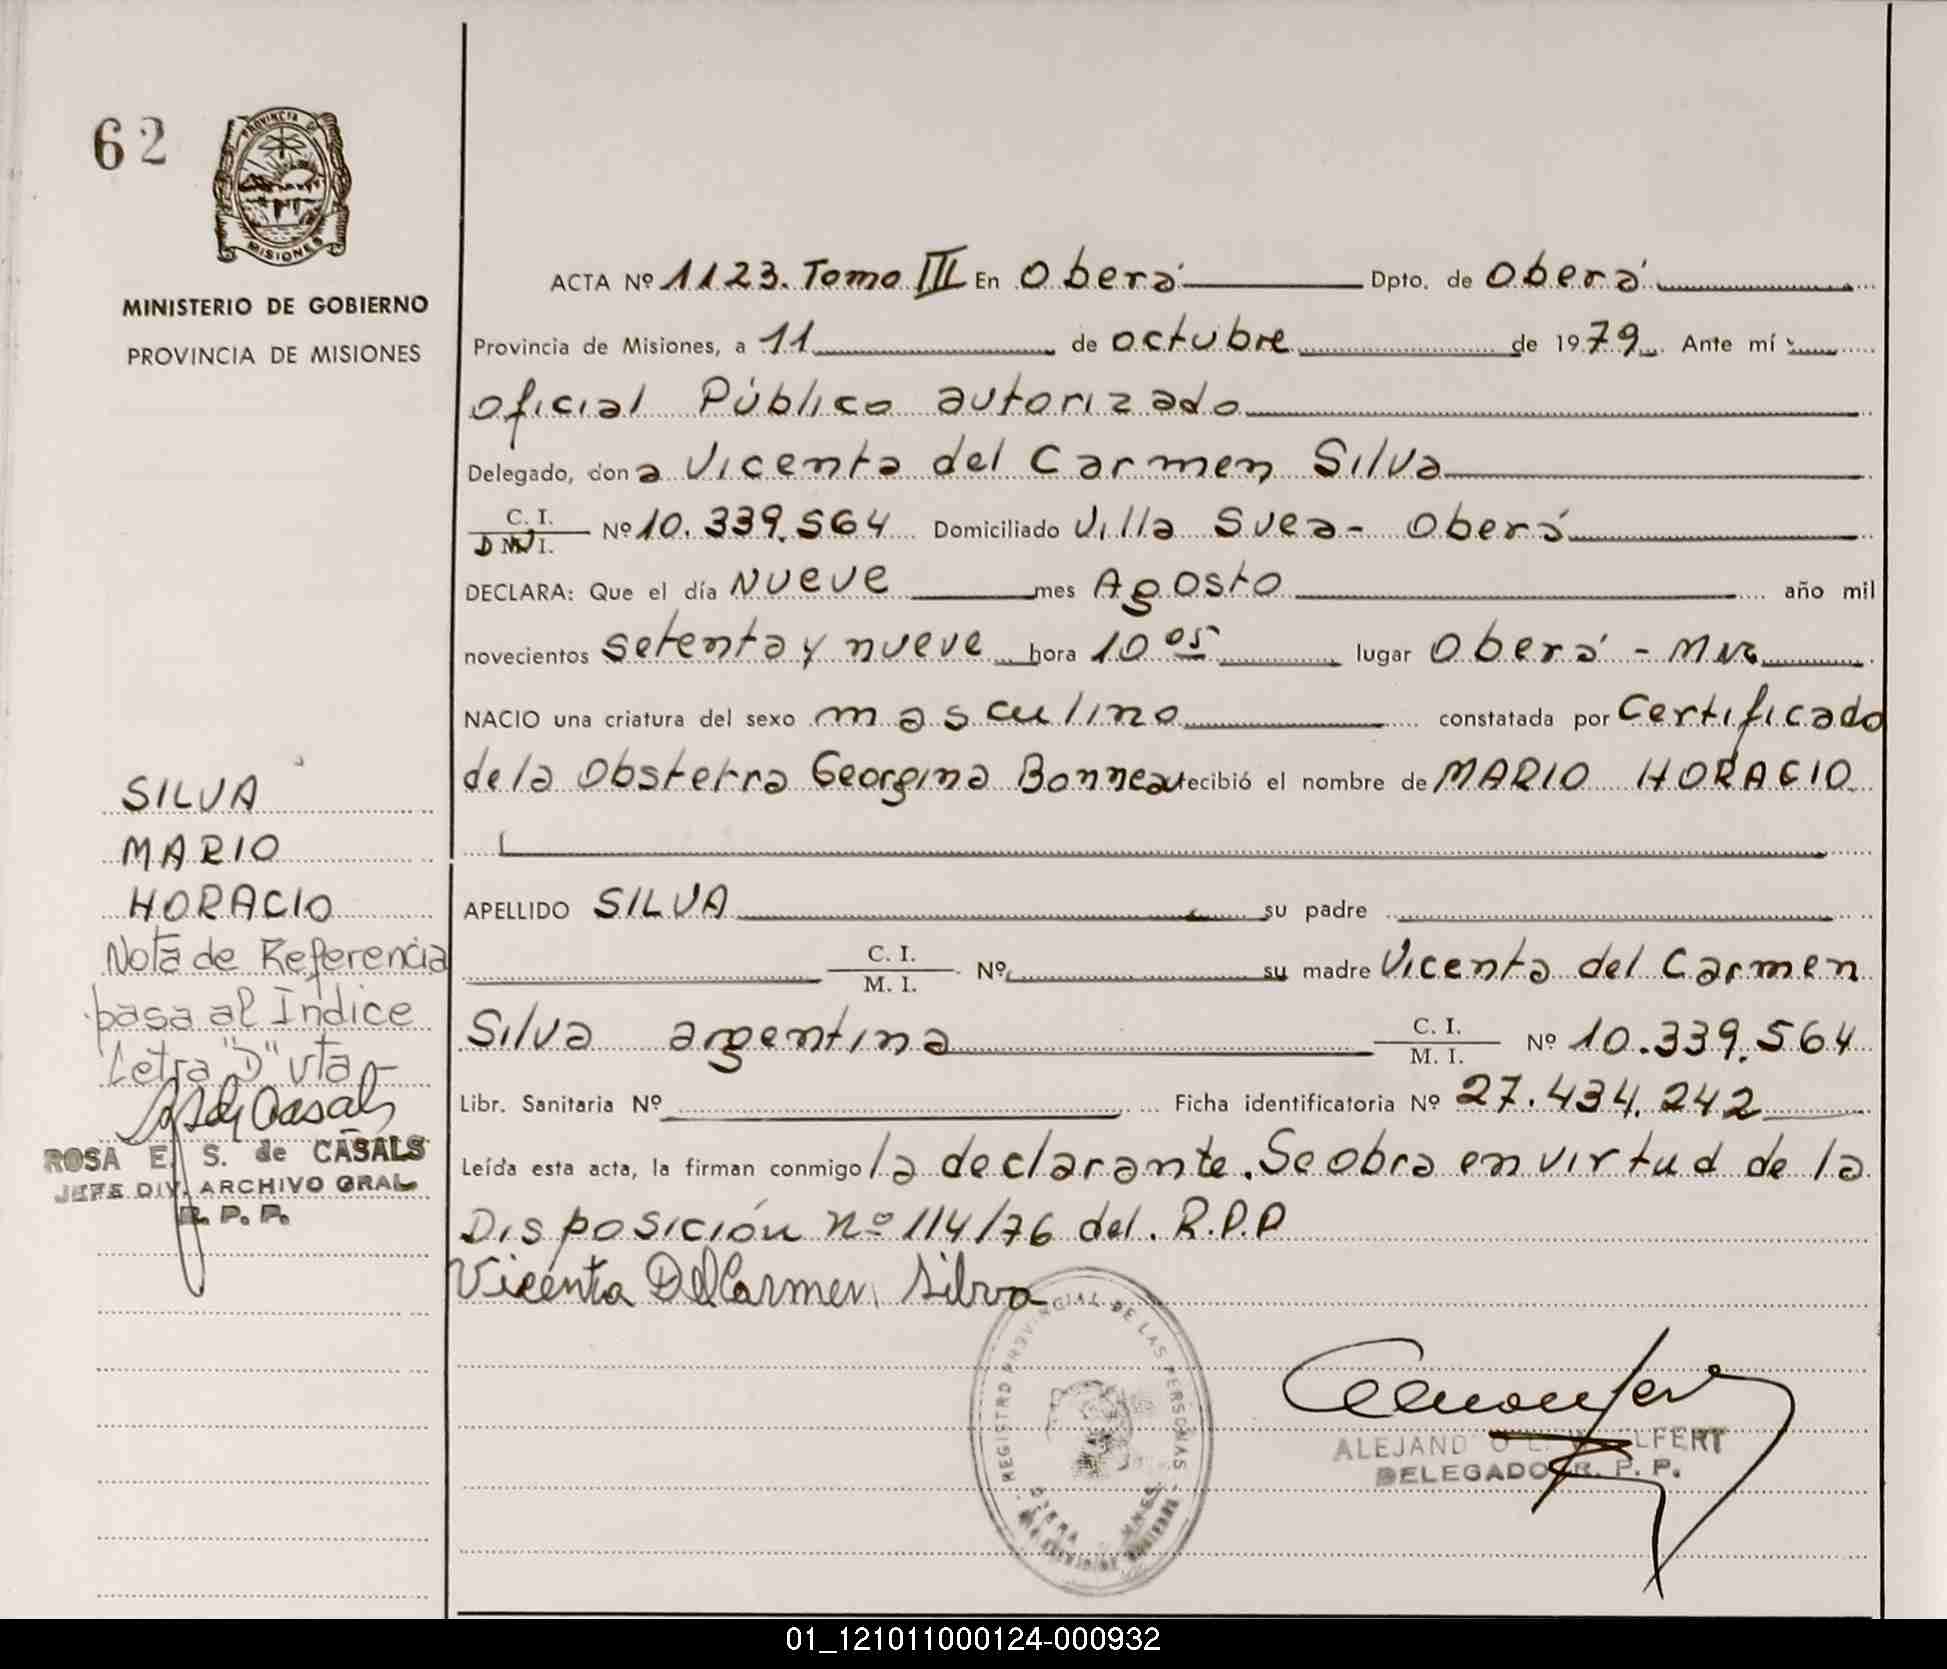 62
PROVINCIA DE
MISIONES
MINISTERIO DE GOBIERNO
PROVINCIA DE MISIONES
ACTA Nº 1123. Tomo III En Oberá Dpto. de Oberá
Provincia de Misiones, a 11 de octubre de 1979. Ante mí
oficial Público autorizado
Delegado, don a Vicenta del Carmen Silva
C. I.
D N I. Nº 10.339.564 Domiciliado Villa Svea - Oberá
DECLARA: Que el día Nueve mes Agosto año mil
novecientos setenta y nueve hora 10 05 lugar Oberá -
NACIO una criatura del sexo masculino constatada por Certificado
de la Obstetra Georgina Bonneau recibió el nombre de MARIO HORACIO
APELLIDO SILVA su padre
C. I.
M. I. Nº su madre Vicenta del Carmen
Silva argentina C. I.
M. I. Nº 10.339.564
Libr. Sanitaria Nº Ficha identificatoria Nº 27.434.242
Leída esta acta, la firman conmigo la declarante. Se obra en virtud de la
Disposición nº 114/76 del. R.P.P
Vicenta Del Carmen Silva
REGISTRO PROVINCIAL DE LAS PERSONAS
OBERA
ALEJAND O L. LFERT
DELEGADO R. P. P.
SILVA
MARIO
HORACIO
Nota de Referencia
pasa al Indice
Letra "D" vta
ROSA E. S. de CASALS
JEFE DIV. ARCHIVO GRAL
R. P. P.
01_121011000124-000932